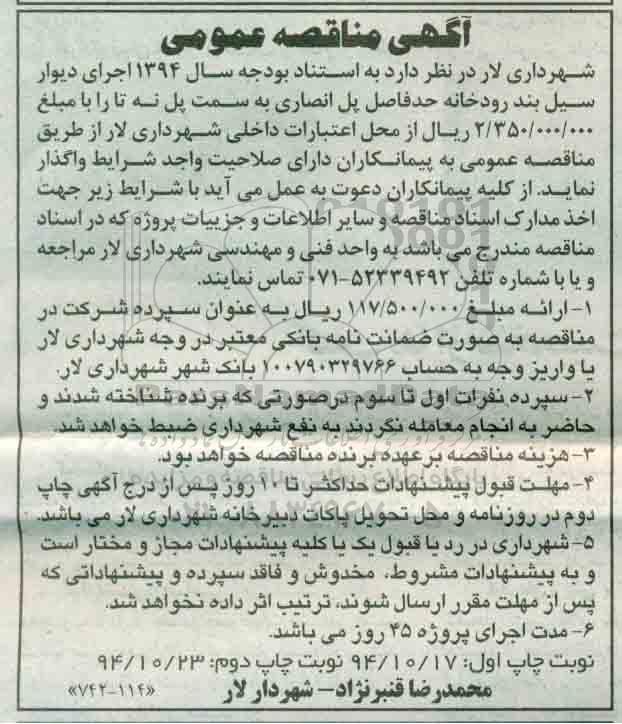 آگهی مناقصه عمومی
شهرداری لار در نظر دارد به استناد بودجه سال ۱۳۹۴ اجرای دیوار
سیل بند رودخانه حدفاصل پل انصاری به سمت پل نه تا را با مبلغ
۲/۳۵۰/۰۰۰/۰۰۰ ریال از محل اعتبارات داخلی شهرداری لار از طریق
مناقصه عمومی به پیمانکاران دارای صلاحیت واجد شرایط واگذار
نماید. از کلیه پیمانکاران دعوت به عمل می آید با شرایط زیر جهت
اخذ مدارک اسناد مناقصه و سایر اطلاعات و جزییات پروژه که در اسناد
مناقصه مندرج می باشد به واحد فنی و مهندسی شهرداری لار مراجعه
و یا با شماره تلفن ۵۲۳۳۹۴۹۲-۰۷۱ تماس نمایند.
۱- ارائه مبلغ ۱۱۷/۵۰۰/۰۰۰ ریال به عنوان سپرده شرکت در
مناقصه به صورت ضمانت نامه بانکی معتبر در وجه شهرداری لار
یا واریز وجه به حساب ۱۰۰۷۹۰۳۲۹۷۶۶ بانک شهر شهرداری لار.
۲- سپرده نفرات اول تا سوم درصورتی که برنده شناخته شدند و
حاضر به انجام معامله نگردند به نفع شهرداری ضبط خواهد شد.
۳- هزینه مناقصه بر عهده برنده مناقصه خواهد بود.
۴- مهلت قبول پیشنهادات حداکثر تا ۱۰ روز پس از درج آگهی چاپ
دوم در روزنامه و محل تحویل پاکات دبیرخانه شهرداری لار می باشد.
۵- شهرداری در رد یا قبول یک یا کلیه پیشنهادات مجاز و مختار است
و به پیشنهادات مشروط، مخدوش و فاقد سپرده و پیشنهاداتی که
پس از مهلت مقرر ارسال شوند، ترتیب اثر داده نخواهد شد.
۶- مدت اجرای پروژه ۴۵ روز می باشد.
نوبت چاپ اول: ۹۴/۱۰/۱۷ نوبت چاپ دوم: ۹۴/۱۰/۲۳
محمدرضا قنبرنژاد- شهردار لار «۱۱۴-۷۴۲»